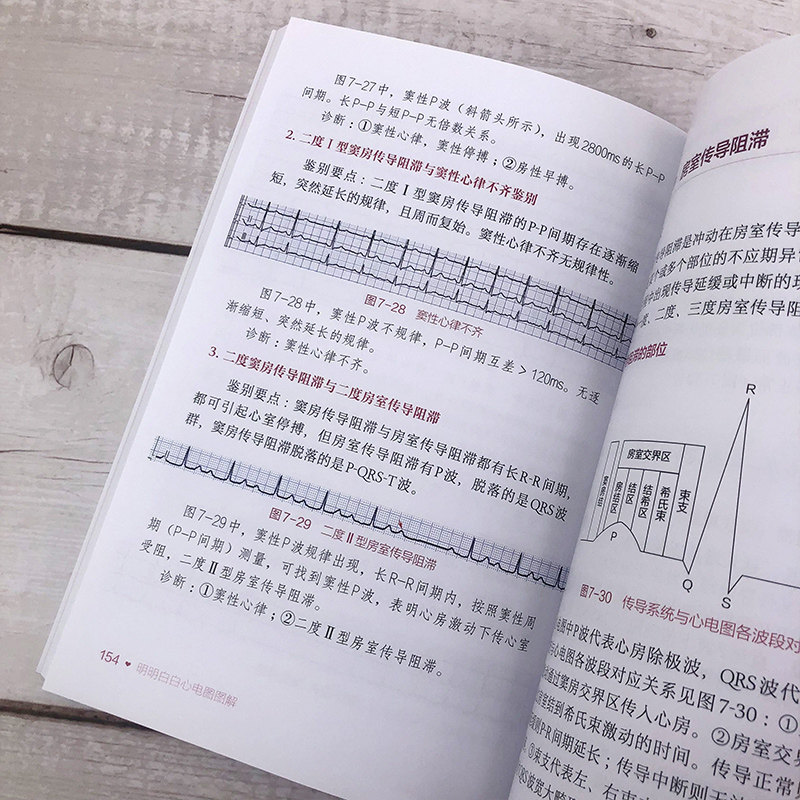 图7-27中，窦性P波（斜箭头所示），出现2800ms的长P-P
间期。长P-P与短P-P无倍数关系。
诊断：①窦性心律，窦性停搏；②房性早搏。
2. 二度Ⅰ型窦房传导阻滞与窦性心律不齐鉴别
鉴别要点：二度Ⅰ型窦房传导阻滞的P-P间期存在逐渐缩
短，突然延长的规律，且周而复始。窦性心律不齐无规律性。
图7-28 窦性心律不齐
图7-28中，窦性P波不规律，P-P间期互差＞120ms。无逐
渐缩短、突然延长的规律。
诊断：窦性心律不齐。
3. 二度窦房传导阻滞与二度房室传导阻滞
鉴别要点：窦房传导阻滞与房室传导阻滞都有长R-R间期，
都可引起心室停搏，但房室传导阻滞有P波，脱落的是QRS波
群，窦房传导阻滞脱落的是P-QRS-T波。
图7-29 二度Ⅱ型房室传导阻滞
图7-29中，窦性P波规律出现，长R-R间期内，按照窦性周
期（P-P间期）测量，可找到窦性P波，表明心房激动下传心室
受阻，二度Ⅱ型房室传导阻滞。
诊断：①窦性心律；②二度Ⅱ型房室传导阻滞。
154 ♥ 明明白白心电图图解
房室传导阻滞
导阻滞是冲动在房室传导
个或多个部位的不应期异
中出现传导延缓或中断的现
度、二度、三度房室传导阻
阻滞的部位
R
房室交界区
房结区
结区
结希区
希氏束
束支
P
Q
S
图7-30 传导系统与心电图各波段对
电图中P波代表心房除极波，QRS波代
与心电图各波段对应关系见图7-30：①
通过窦房交界区传入心房。②房室交界
房室结到希氏束激动的时间。传导正常则
则PR间期延长；传导中断则无法
③束支代表左、右束
QRS波宽大畸